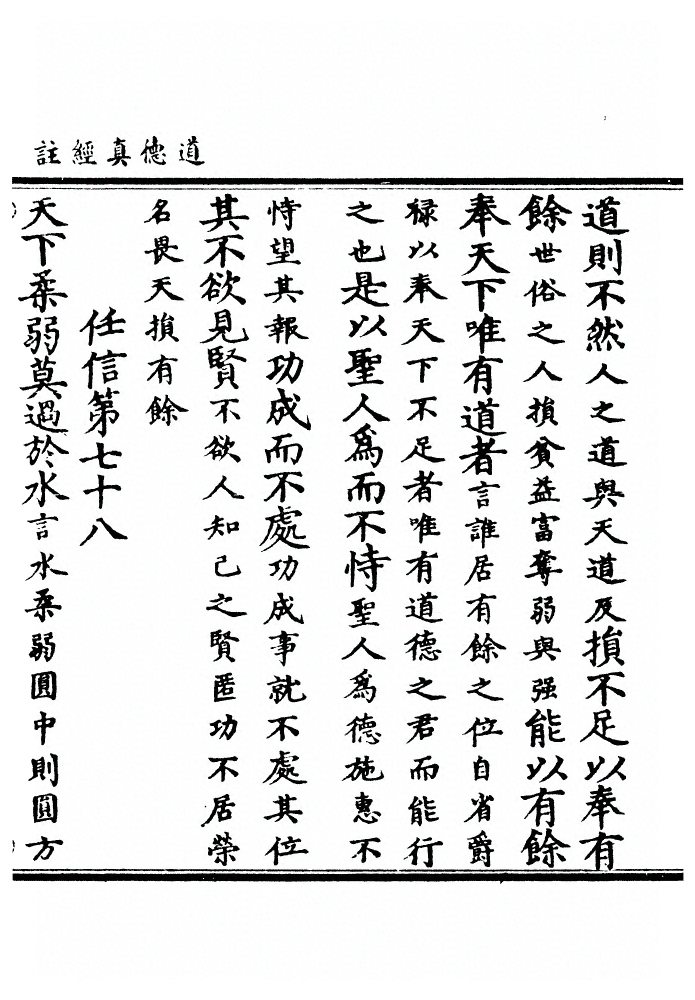 道德真經註
道則不然人之道與天道反損不足以奉有
餘世俗之人損貧益富奪弱與强能以有餘
奉天下唯有道者言誰居有餘之位自省爵
禄以奉天下不足者唯有道德之君而能行
之也是以聖人爲而不恃聖人爲德施惠不
恃望其報功成而不處功成事就不處其位
其不欲見賢不欲人知己之賢匿功不居榮
名畏天損有餘
任信第七十八
天下柔弱莫過於水言水柔弱圓中則圓方